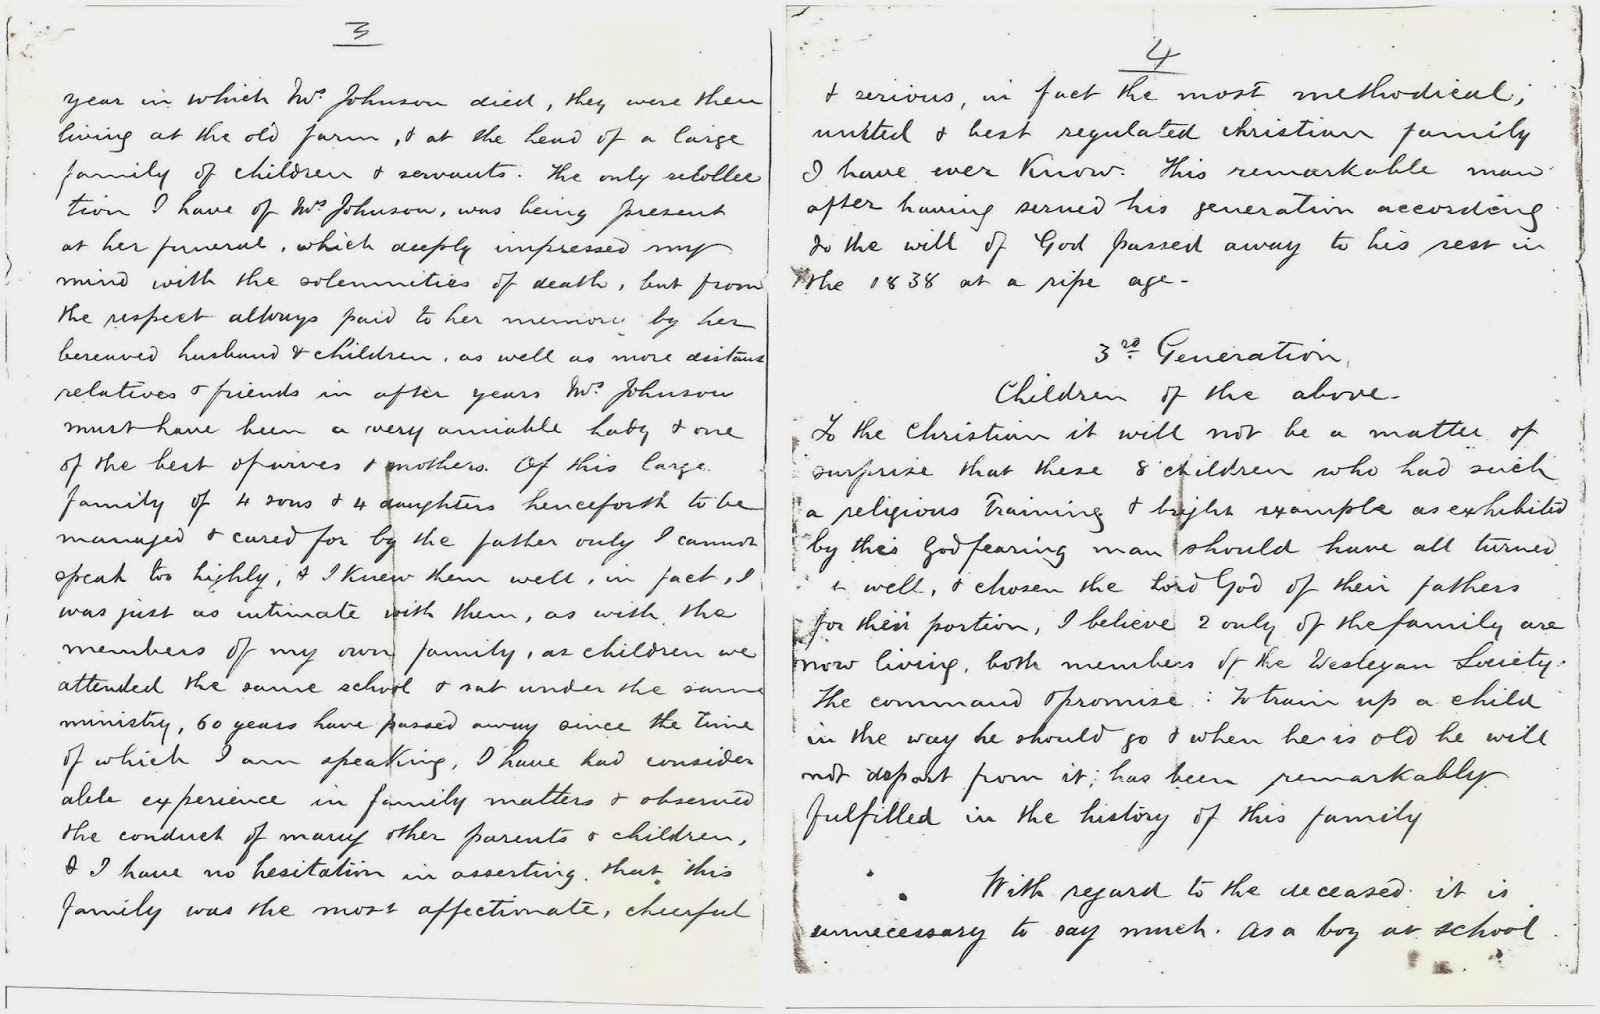 3
year in which Mrs. Johnson died, they were then
living at the old farm, & at the head of a large
family of children & servants. The only recollec
tion I have of Mrs Johnson, was being present
at her funeral, which deeply impressed my
mind with the solemnities of death, but from
the respect always paid to her memory by her
bereaved husband & children, as well as more distant
relatives & friends in after years Mrs. Johnson
must have been a very amiable lady & one
of the best of wives & mothers. Of this large
family of 4 sons & 4 daughters henceforth to be
managed & cared for by the father only I cannot
speak too highly, & I knew them well, in fact, I
was just as intimate with them, as with the
members of my own family, as children we
attended the same school & sat under the same
ministry, 60 years have passed away since the time
of which I am speaking, I have had consider
able experience in family matters & observed
the conduct of many other parents & children,
& I have no hesitation in asserting that this
family was the most affectionate, cheerful
4
& serious, in fact the most methodical,
united & best regulated christian family
I have ever Known. This remarkable man
after having served his generation according
to the will of God passed away to his rest in
the 1838 at a ripe age-
3rd Generation,
Children of the above-
To the Christian it will not be a matter of
surprise that these 8 children who had such
a religious training & bright example as exhibited
by this Godfearing man should have all turned
well, & chosen the Lord God of their fathers
for their portion, I believe 2 only of the family are
now living, both members of the Wesleyan Society.
The command & promise : To train up a child
in the way he should go & when he is old he will
not depart from it; has been remarkably
fulfilled in the history of this family
With regard to the deceased it is
unnecessary to say much. As a boy at school